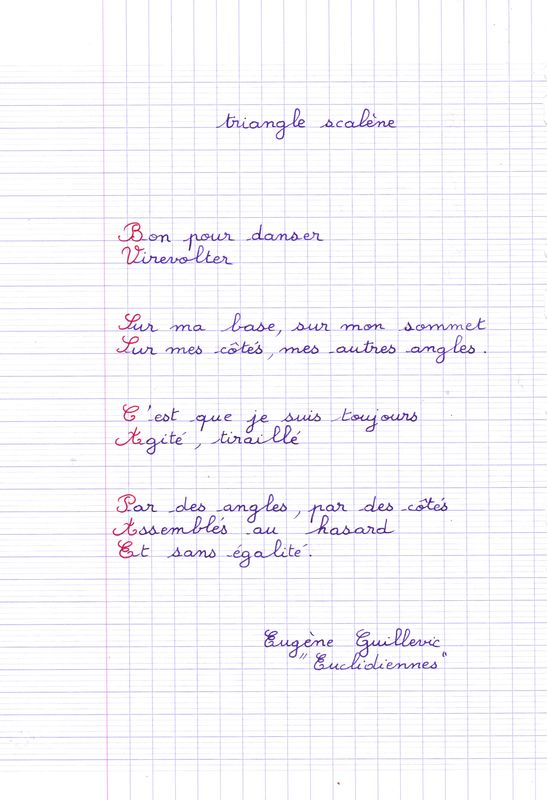 triangle scalène
Bon pour danser
Virevolter
Sur ma base, sur mon sommet
Sur mes côtés, mes autres angles.
C'est que je suis toujours
Agité, tiraillé
Par des angles, par des côtés
Assemblés au hasard
Et sans égalité.
Eugène Guillevic
"Euclidiennes"